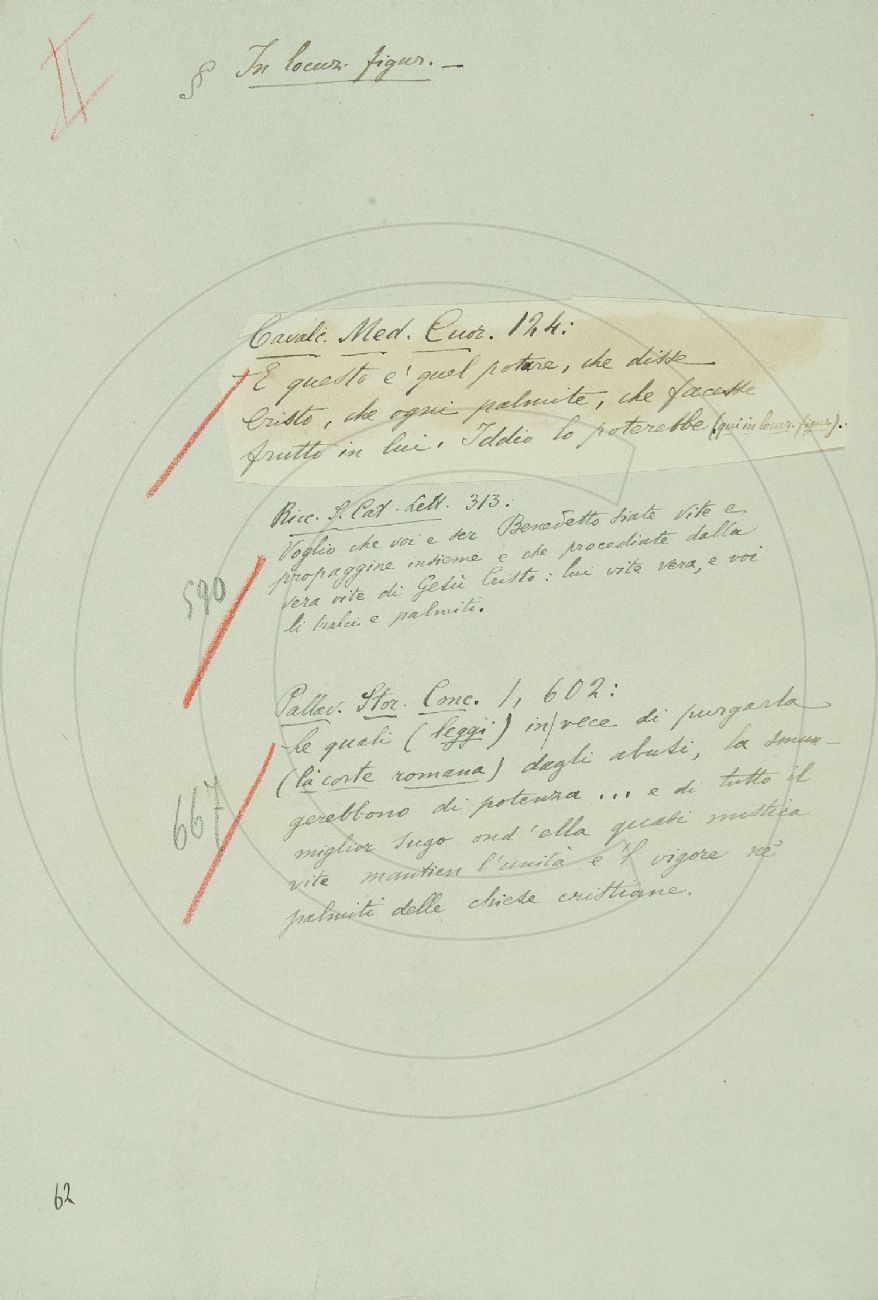 II
§ In locuz. figur. —
Cavalc. Med. Cuor. 124:
E questo e' quel potare, che disse
Cristo, che ogni palmite, che facesse
frutto in lui, Iddio lo poterebbe (qui in locuz. figur.).
Ricc. S. Cat. Lett. 313:
Voglio che voi e ser Benedetto siate vite e
propaggine insieme e che procediate dalla
vera vite di Gesù Cristo: lui vite vera, e voi
li tralci e palmiti.
590
Pallav. Stor. Conc. 1, 602:
Le quali (leggi) in vece di purgarla
(la corte romana) dagli abusi, la smun-
gerebbono di potenza ... e di tutto il
miglior sugo ond'ella quasi mistica
vite mantien l'unità e 'l vigore ne'
palmiti delle chiese cristiane.
667
62